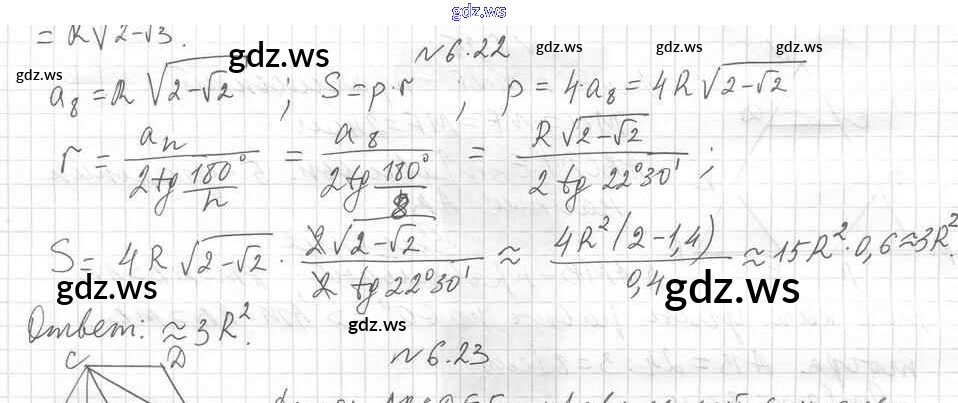 gdz.ws
= R√2-√3.
gdz.ws
№6.22
gdz.ws gdz.ws gdz.ws
gdz.ws
a₈ = R√2-√2 ; S = p·r ; p = 4·a₈ = 4R√2-√2
r = aₙ / 2tg 180°/n = a₈ / 2tg 180°/8 = R√2-√2 / 2 tg 22°30' ;
S = 4R√2-√2 · 2√2-√2 / 2 tg 22°30' ≈ 4R²(2-1,4) / 0,4 ≈ 15R²·0,6≈3R².
gdz.ws gdz.ws
Ответ: ≈ 3R².
gdz.ws
№6.23
C D